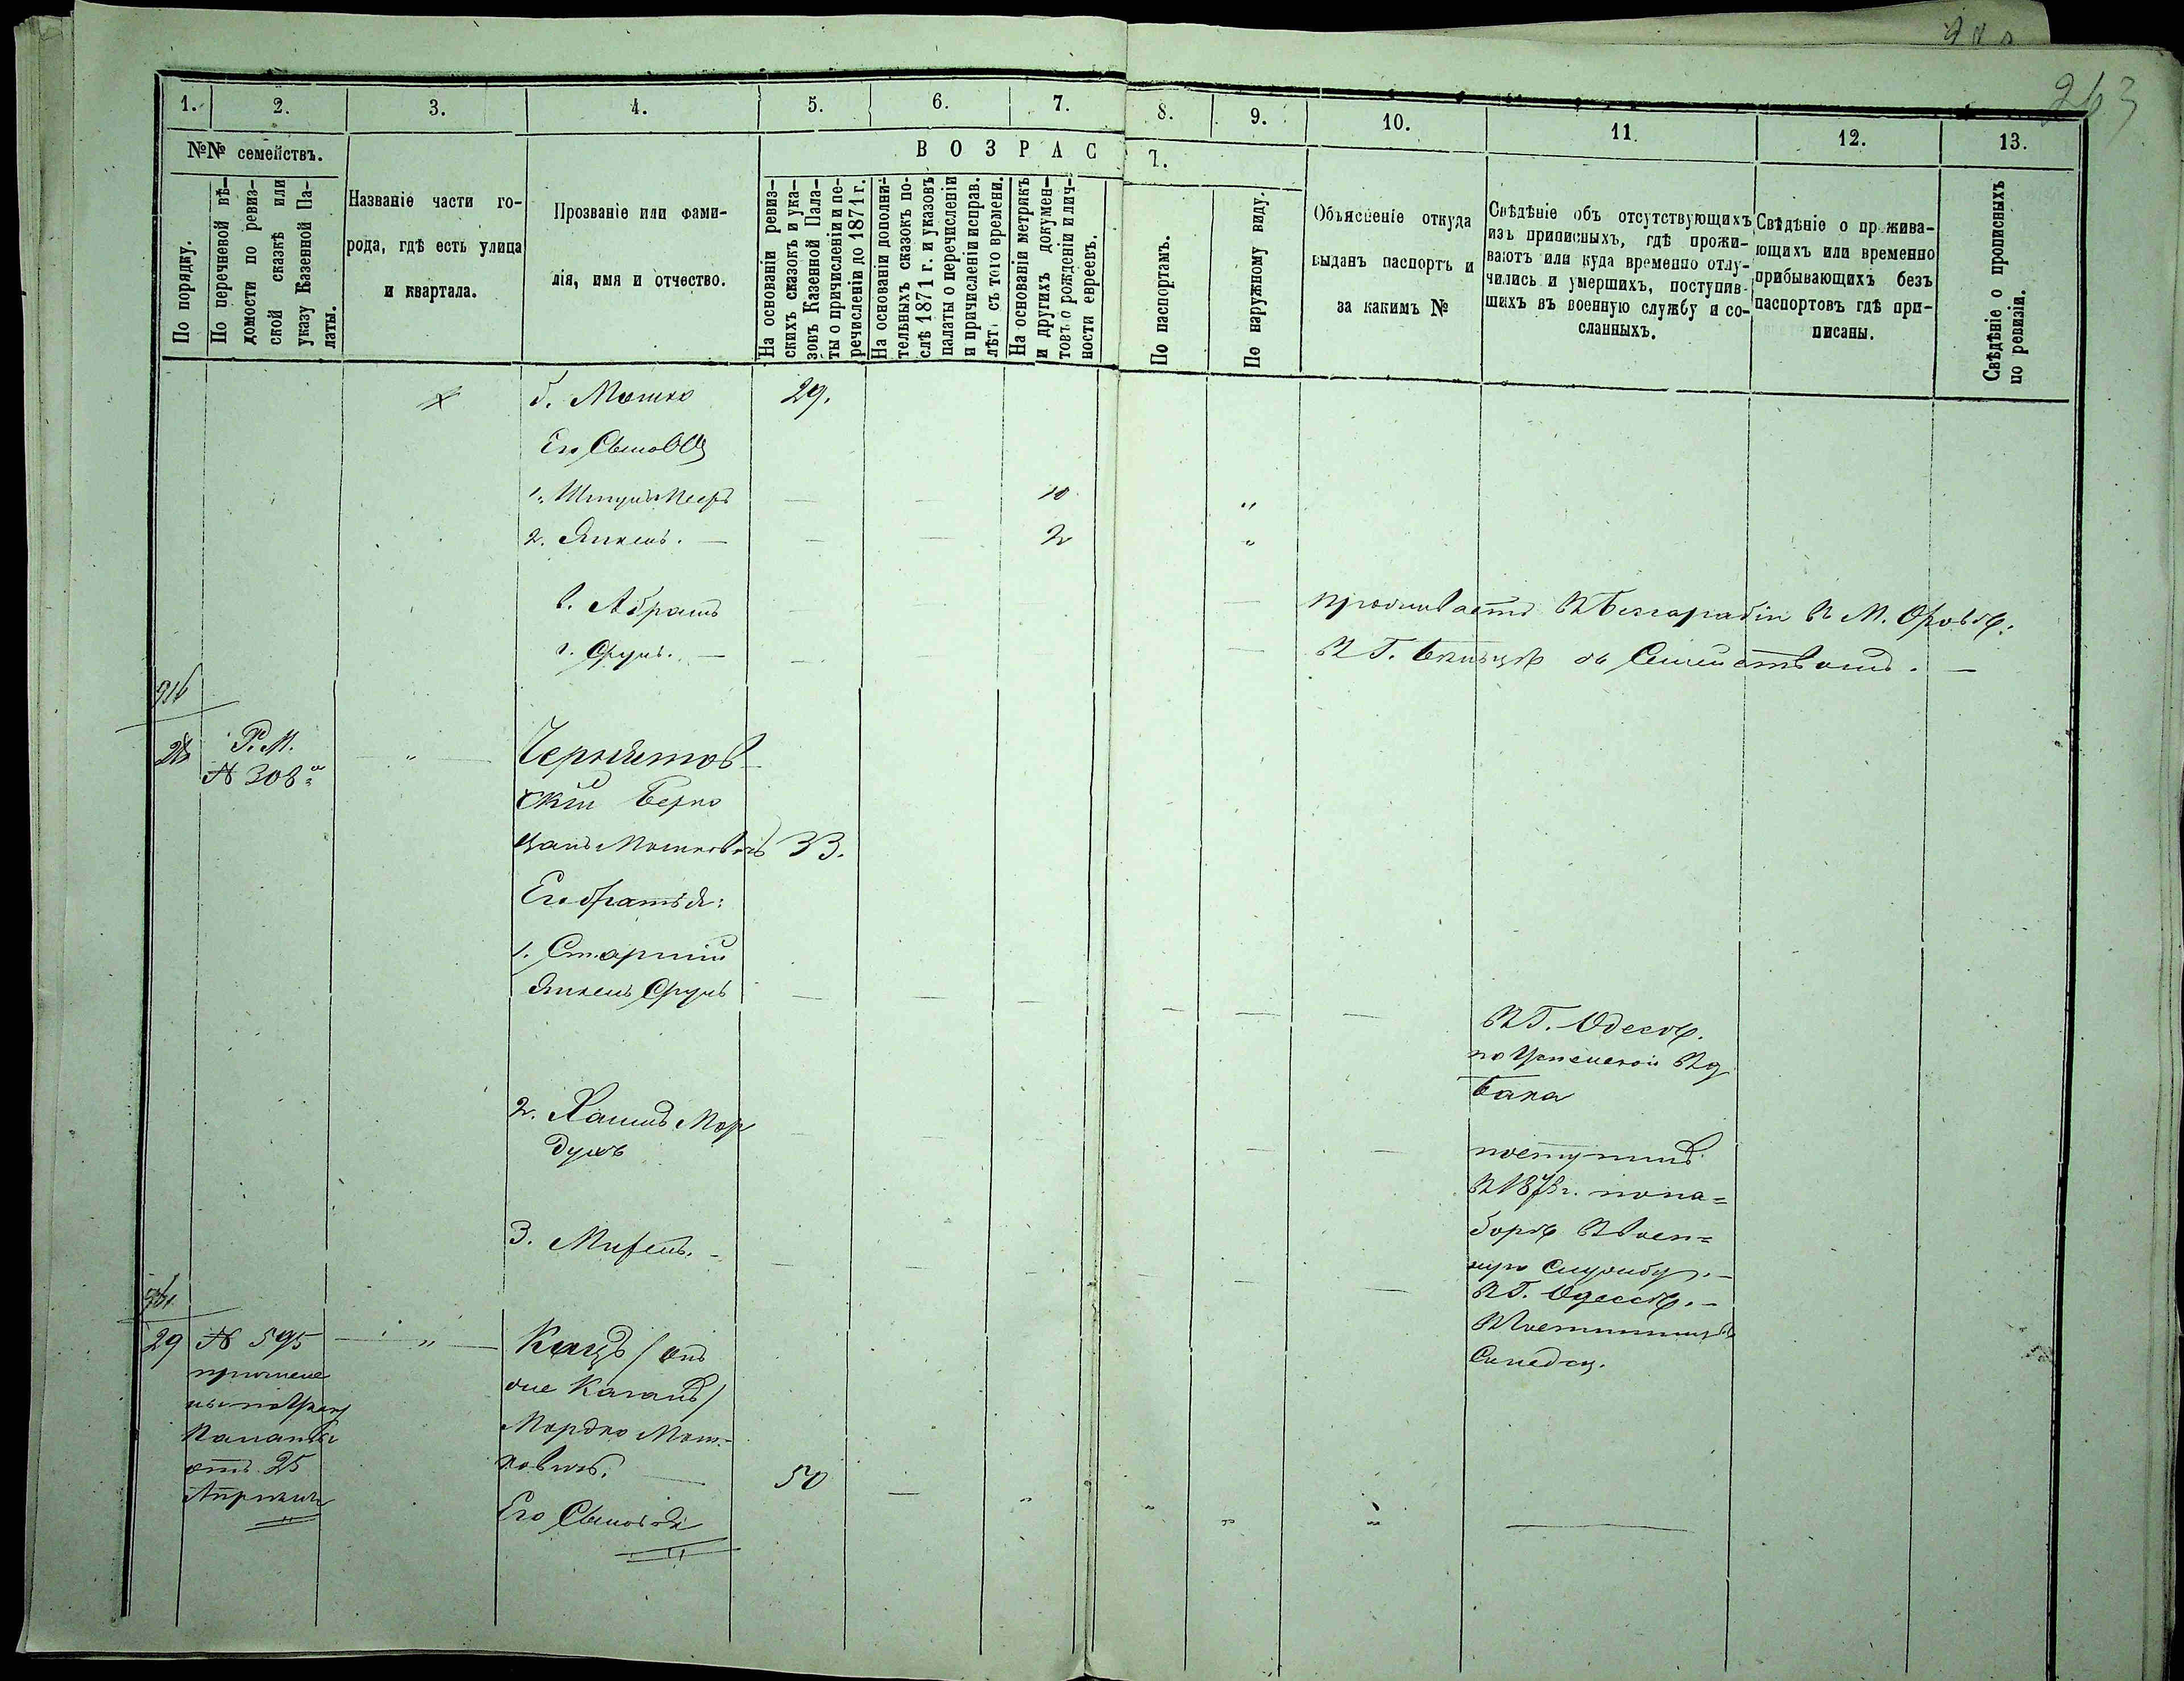 263
1. 2. 3. 4. 5. 6. 7. 8. 9. 10. 11. 12. 13.
№№ семействъ.
По порядку.
По перечневой вѣ-
домости по ревиз-
ской сказкѣ или
указу Казенной Па-
латы.
Названіе части го-
рода, гдѣ есть улица
и квартала.
Прозваніе или фами-
лія, имя и отчество.
ВОЗРАСТ.
На основаніи ревиз-
скихъ сказокъ и ука-
зовъ Казенной Пала-
ты о причисленіи и пе-
речисленіи до 1871 г.
На основаніи дополни-
тельныхъ сказокъ по-
слѣ 1871 г. и указовъ
палаты о перечисленіи
и причисленіи исправ.
лѣтъ съ того времени.
На основаніи метрикъ
и другихъ докумен-
товъ о рожденіи и лич-
ности евреевъ.
По паспортамъ.
По наружному виду.
Объясненіе откуда
выданъ паспортъ и
за какимъ №
Свѣдѣніе объ отсутствующихъ
изъ приписныхъ, гдѣ прожи-
ваютъ или куда временно отлу-
чились и умершихъ, поступив-
шихъ въ военную службу и со-
сланныхъ.
Свѣдѣніе о прожива-
ющихъ или временно
прибывающихъ безъ
паспортовъ гдѣ при-
писаны.
Свѣдѣніе о прописныхъ
по ревизіи.
б. Мошко 29.
Его Сыновья
1. Шмуль Мееръ — — 10 "
2. Янкель. — — — 2 "
в. Абрамъ — — — проживаетъ въ Бессарабіи въ М.
г. Сруль. — — — — въ Г. Бельцѣ съ Семействомъ. —
28 Р. М. " Чернятов
№ 308
скій Берко
Мошковичъ 33.
Его братья:
1. Старшій
Янкель Сруль — — — — — —
въ Г. Одессѣ.
по Успенской въ д
Бака
2. Хаимъ Мор
духъ
поступилъ
въ 187 г. по на=
борѣ въ воен=
ную Службу. —
3.
въ Г. Одессѣ. —
29 № 595 — " — Кацъ / онъ
же Каганъ /
Мордко Мош-
ковичъ. 50 — " " " "
по Указу
Палаты
отъ 25
Апрѣля
Его Сыновья